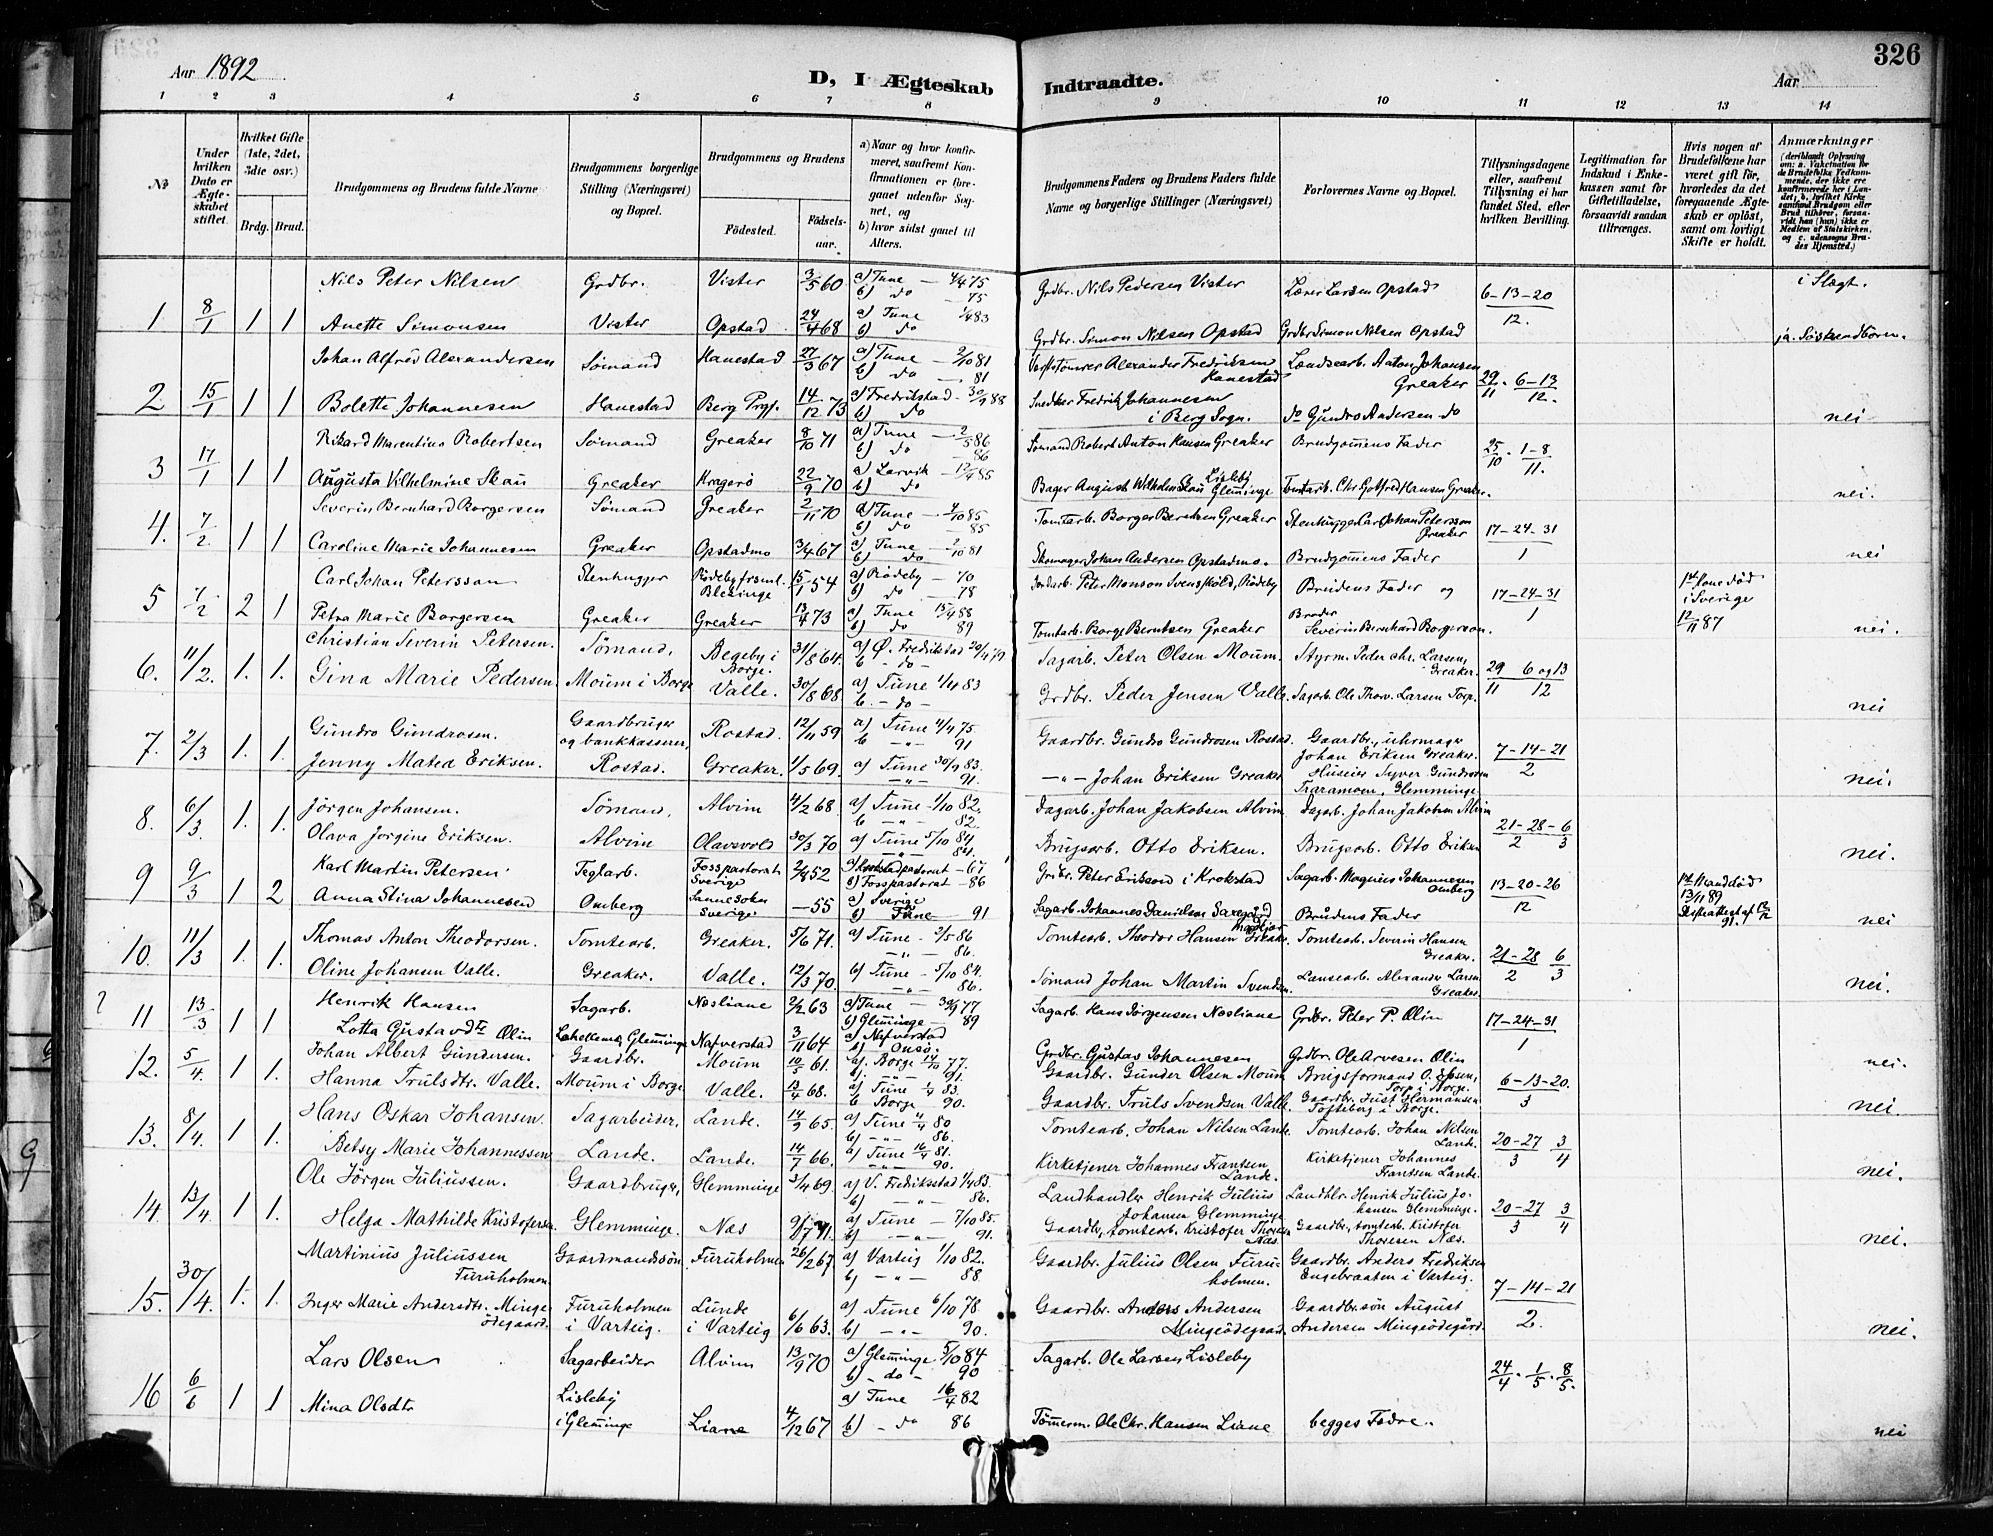 326
Aar 1892
D, I Ægteskab Indtraadte.
Aar
1 2 3 4 5 6 7 8 9 10 11 12 13 14
No
Under hvilken Dato er Ægteskabet stiftet.
Hvilket Gifte (1ste, 2det, 3die osv.)
Brdg. Brud.
Brudgommens og Brudens fulde Navne
Brudgommens borgerlige Stilling (Næringsvei) og Bopæl.
Brudgommens og Brudens
Födested.
Födselsaar.
a) Naar og hvor konfirmeret, saafremt Konfirmationen er foregaaet udenfor Sognet, og
b) hvor sidst gaaet til Alters.
Brudgommens Faders og Brudens Faders fulde Navne og borgerlige Stillinger (Næringsvei)
Forlovernes Navne og Bopæl.
Tillysningsdagene eller, saafremt Tillysning ei har fundet Sted, efter hvilken Bevilling.
Legitimation for Indskud i Enkekassen samt for Giftetilladelse, forsaavidt saadan tiltrænges.
Hvis nogen af Brudefolkene har været gift för, hvorledes da det foregaaende Ægteskab er oplöst, samt om lovligt Skifte er holdt.
Anmærkninger
Nils Peter Nilsen Grdbr. Vister 3/5 60 a) Tune — 4/4 75 Grdbr. Nils Pedersen Vister Lærer Larsen Opstad 6-13-20 i Slægt.
b) do 75
1 8/1 1 1 Anette Simonsen Vister Opstad 24/4 68 a) Tune 83 Grdbr. Simon Nilsen Opstad Grdbr Simon Nilsen Opstad 12. ja. Söskendbörn.
b) do
Johan Alfred Alexandersen Sömand Hanestad 27/3 67 a) Tune — 2/10 81 Tömrer Alexander Fredriksen Hanestad Landsearb. Anton Johansen Greaker 29/11 . 6-13/12.
b) do 81
2. 15/1 1 1 Bolette Johannesen Hanestad Berg Prgj. 14/12 73 a) Fredrikstad 30/9 88 Snedker Fredrik Johannesen i Berg Sogn. do Gundro Andersen do nei
b) do
Rikard Marentius Robertsen Sömand Greaker 8/10 71 a) Tune — 2/5 86 Sömand Robert Anton Hansen Greaker Brudgomens Fader 25/10 . 1-8/11.
b) do 86
3 17/1 1 1 Augusta Vilhelmine Skau Greaker Kragerö 22/9 70 a) Larvik — 12/4 85 Bager August Wilhelm Skau Lisleby Glemminge Tomtarb. Chr. Gotfred Hansen Greaker. nei.
b) do
Severin Bernhard Borgersen Sömand Greaker 2/11 70 a) Tune — 4/10 85 Tomtarb. Borger Berntsen Greaker Stenhugger Carl Johan Petersson Greaker 17-24-31
b) do 85
4. 7/2 1 1 Caroline Marie Johannesen Greaker Opstadmo 3/4 67 a) Tune — 2/10 81 Skomager Johan Andersen Opstadmo. Brudgomens Fader 1 nei
b) do
Carl Johan Petersson Stenhugger Rödeby frsml. Blekinge 15/1 54 a) Rödeby — 70 Jordarb. Peter Monson Svensköld, Rödeby Brudens Fader og 17-24-31 1st Kone död i Sverige 12/11 87
b) do — 78
5 7/2 2 1 Petra Marie Borgersen Greaker Greaker 13/4 73 a) Tune 15/4 88 Tomtarb. Borge Berntsen Greaker Broder Severin Bernhard Borgerson. 1 nei.
b) do 89
Christian Severin Petersen. Sömand, Begeby i Borge. 31/8 64. a) Ö. Fredrikstad 20/4 79. Sagarb. Peter Olsen Moum. Styrm. Peder Chr. Larsen, Greaker. 29 6 og 13
b - do -
6. 11/2. 1. 1. Gina Marie Pedersen. Moum i Borge Valle. 30/8 68 a) Tune 1/4 83 Grdbr. Peder Jensen Valle. Sagarb. Ole Thorv. Larsen Torp. 11 12 nei
b. - do -
Gundro Gundrosen. Gaardbruger og bankkasserer, Rostad. 12/11 59 a) Tune 4/4 75. Gaardbr. Gundro Gundrosen Rostad. Gaardbr., uhrmager Johan Eriksen Greaker. 7-14-21
b -"- 91
7. 2/3 1. 1. Jenny Matea Eriksen. Rostad. Greaker. 1/5 69. a) Tune 30/9 83. -"- Johan Eriksen Greaker Huseier Syver Gundrosen Traramoen, Glemminge. 2 nei.
-"- 91.
Jörgen Johansen. Sömand, Alvim 4/2 68 a) Tune -1/10 82. Dagarb. Johan Jakobsen Alvim Dagarb. Johan Jakobsen Alvim
b -"- 82.
8. 6/3. 1. 1. Olava Jorgine Eriksen. Alvim Olavsvold 30/3 70 a) Tune 5/10 84. Brugsarb. Otto Eriksen. Brugsarb. Otto Eriksen 21-28-6/2 3 nei.
-"- 84.
Karl Martin Petersen Teglarb. Fosspastorat Sverige 2/4 52 a) Krokstadpastorat — 67 Grdbr. Peter Erikson i Krokstad Sagarb. Magnus Johannesen Omberg 13-20-26 1st Mand död 13/11 89 Skifteattest af 91.
b) Fosspastorat — 86
9 9/3 1 2 Anna Stina Johannesen Omberg Sanne Sokn Sverige — 55 a) Sverige Sagarb. Johannes Danielsen Brudens Fader 12 nei
b) Tune 91
Thomas Anton Theodorsen. Tomtearb. Greaker. 5/6 71. a) Tune - 2/5 86 Tomtearb. Theodor Hansen Greaker Tomtearb. Severin Hansen Greaker.
-"- 86.
10. 11/3 1. 1. Oline Johansen Valle. Greaker. Valle. 12/3 70. b) Tune - 5/10 84. Sömand Johan Martin Svendsen Lansearb. Alexander Larsen Greaker. 21-28 6/2 3 nei.
-"- 86.
Henrik Hansen Sagarb. Næsliane 2/2 63 a) Tune — 30/9 77 Sagarb. Hans Jörgensen Næsliane Grdbr. Peter P. Olin
b) Glemminge — 89
11 13/3 1 1 Lotta Gustavdtr Olin Glemminge Nafverstad 3/11 64 a) Nafverstad Grdbr. Gustav Johannesen Grdbr. Ole Arvesen Olin 17-24-31/1 nei.
b) Onsö.
Johan Albert Gundersen. Gaardbr. Moum 10/5 61. a). Borge 14/10 77. Gaardbr. Gunder Olsen Moum Brugsformand O. Torp i Borge.
91.
12. 5/4. 1 1. Hanna Trulsdtr. Valle. Moum i Borge Valle. 13/4 68. a) Tune 83. Gaardbr. Truls Svendsen Valle. Gaardbr. Just Hermansen Tofteberg i Borge. 6-13-20./3 nei.
b Borge 90.
Hans Oskar Johansen. Sagarbeider, Lande. 14/9 65. a) Tune 80 Tomtearb. Johan Nilsen Lande. Tomtearb. Johan Nilsen Lande.
b) -"- 86.
13. 8/4. 1 1. Betsy Marie Johannessen Lande. Lande. 14/7 66. a) Tune 16/4 81. Kirketjener Johannes Frantsen Lande. Kirketjener Johannes Frantsen Lande. 20-27 3/3 4 nei.
-"- 90.
Ole Jörgen Juliussen. Gaardbruger, Glemminge 3/4 69. a) V. Fredrikstad 1/4 83. Landhandler Henrik Julius Johansen Glemminge Landhlr. Henrik Julius Johansen Glemminge.
b) -"- 86.
14. 13/4 1 1. Helga Mathilde Kristofersen Glemminge. Næs 9/7 71. a) Tune — 7/10 85. Gaardbr., tomtearb. Kristofer Thorsen Næs Gaardbr., tomtearb. Kristofer Thoresen Næs. 20-27 3/3 4 nei.
b) -"- 91.
Martinius Juliussen Furuholmen Gaardmandssön Furuholmen 26/2 67. a) Varteig 1/10 82. Gaardbr. Julius Olsen Furuholmen. Gaardbr. Anders Fredriksen Engebraaten i Varteig.
b) -"- 88.
15. 30/4. 1. 1. Inger Marie Andersdtr. Mingeödegaard. Furuholmen i Varteig. Lunde i Varteig 6/6 63. a) Tune 6/10 78 Gaardbr. Anders Andersen Mingeödegaard. Gaardbr.sön August Andersen Mingeödegård. 7-14-21/2. nei.
b) -"- 90.
Lars Olsen Sagarbeider Alvim 13/9 70 a) Glemminge 5/10 84 Sagarb. Ole Larsen Lisleby
b) - do - 90
16 6/6 1 1 Mina Olsdtr Lisleby i Glemminge Liane 4/12 67 a) Tune 16/4 82 Tömerm. Ole Chr. Hansen Liane begges Fædre. 24/4 . 1/5 . 8/5. nei
b) - do 86